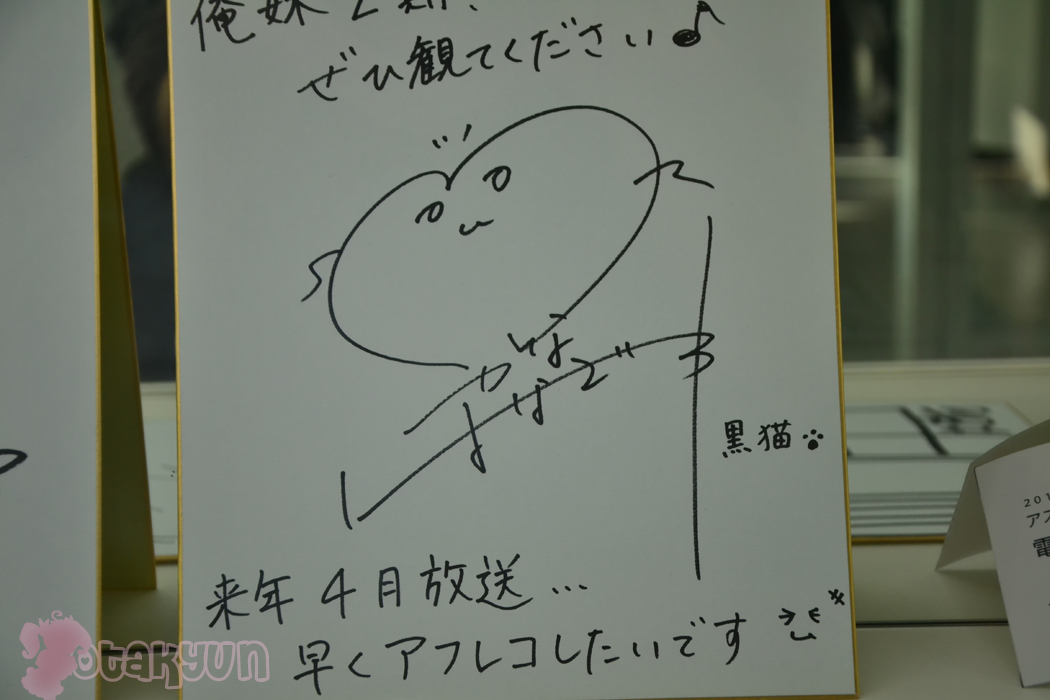 俺妹2期、
ぜひ観てください♪
黒猫
来年4月放送…
早くアフレコしたいです
otakyun
201
アス
電